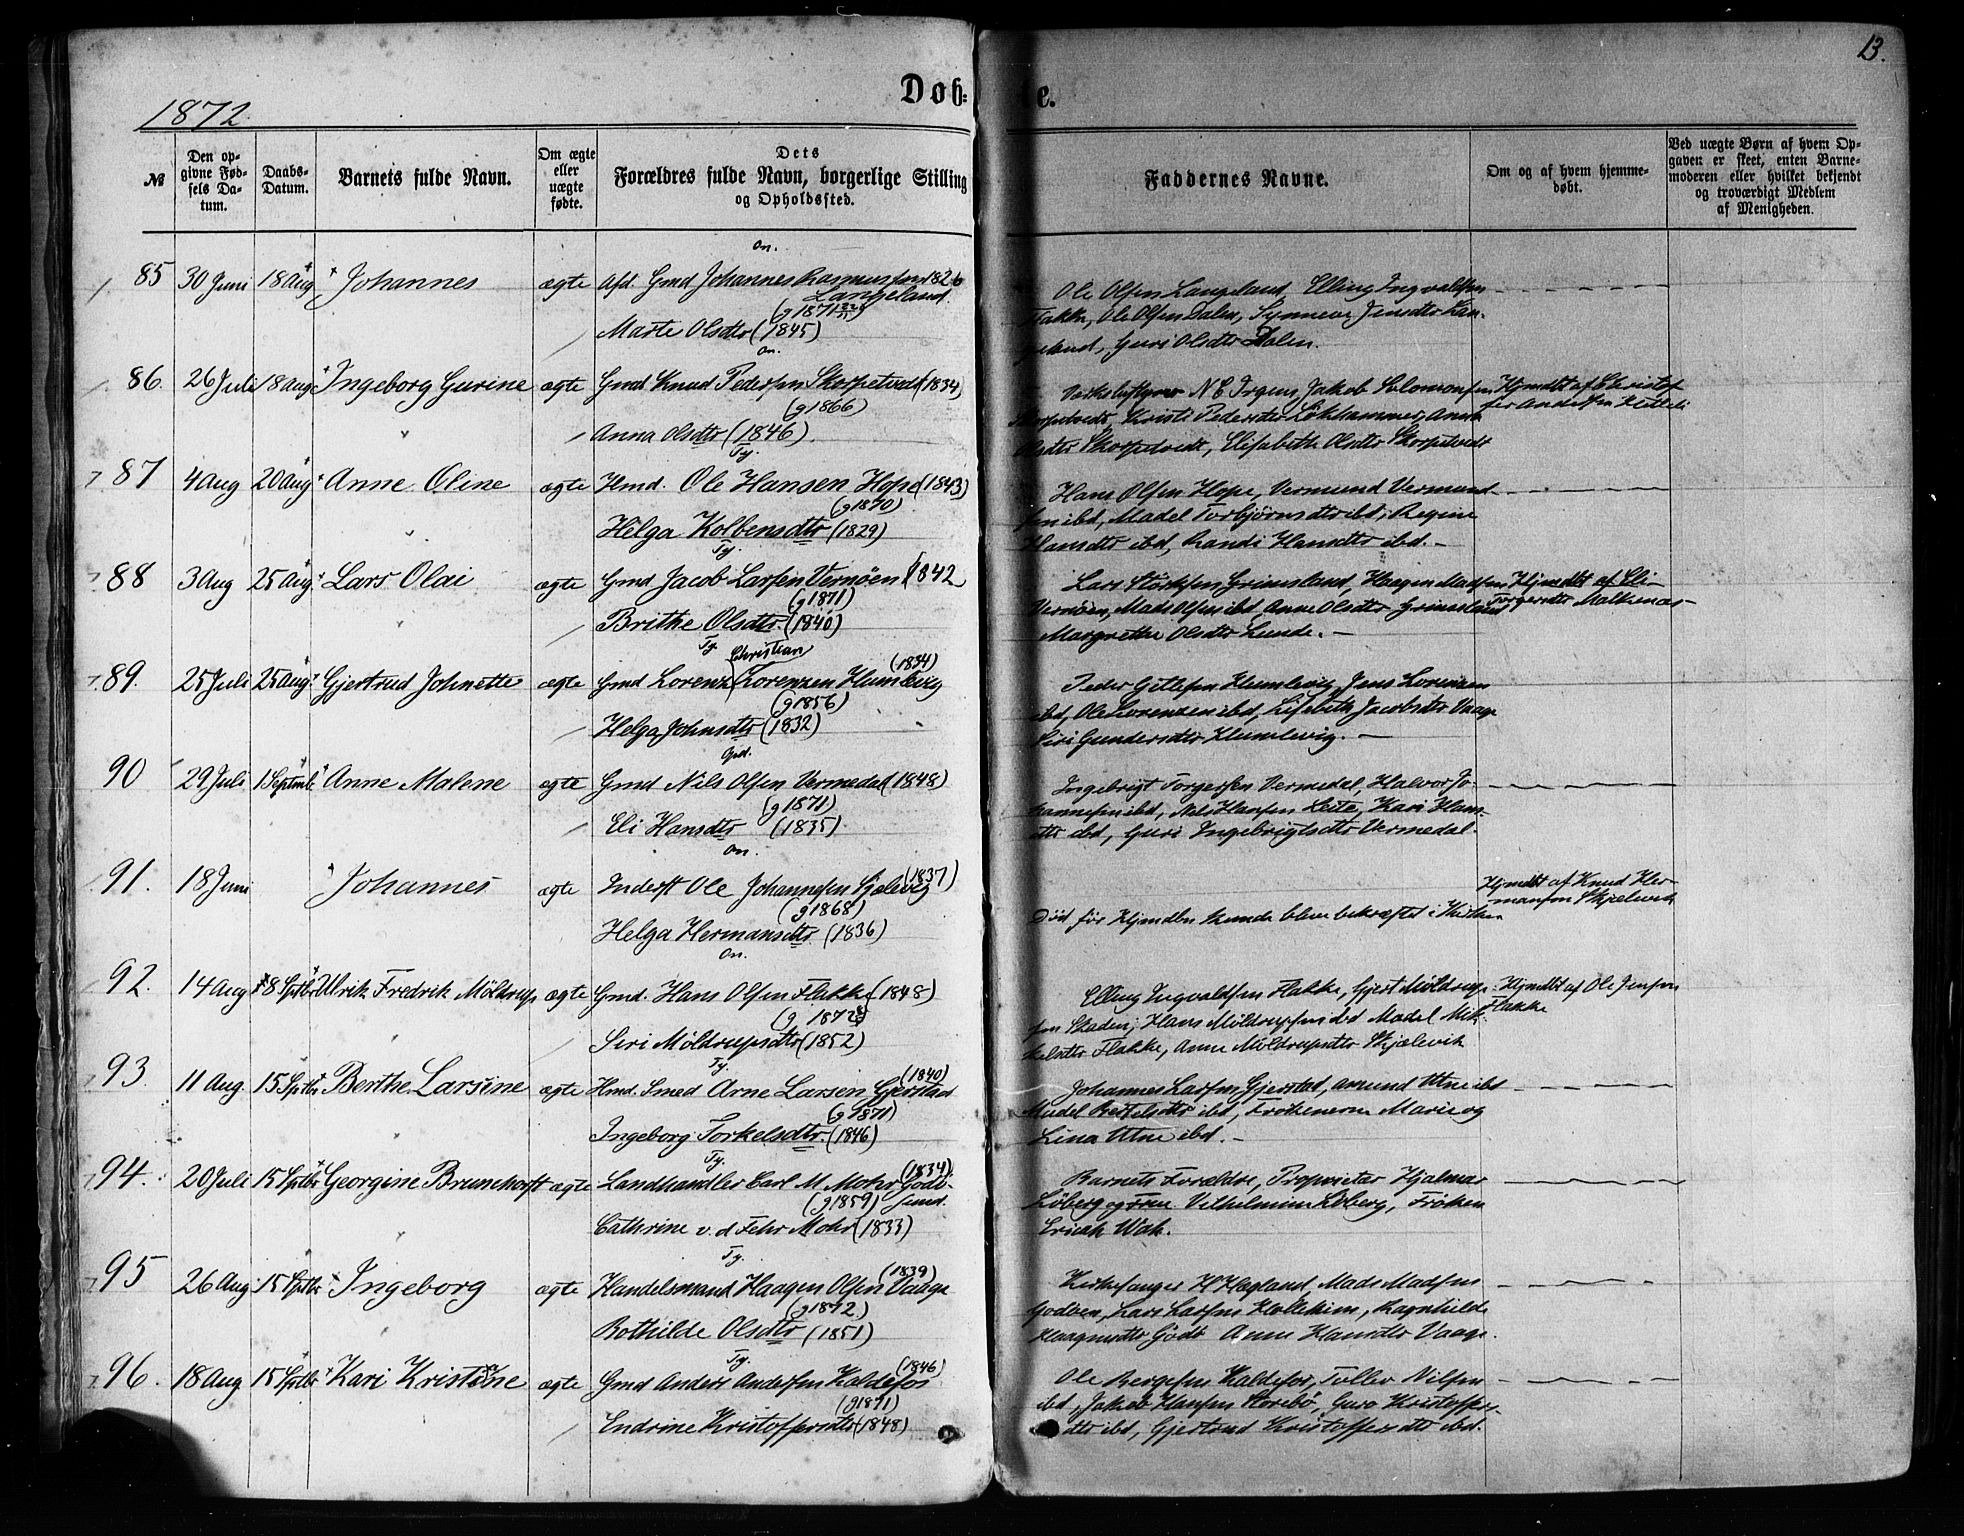 Døb=
te.
13.
1872.
№
Den op-
givne Fød-
sels Da-
tum.
Daabs-
Datum.
Barnets fulde Navn.
Om ægte
eller
uægte
fødte.
Dets
Forældres fulde Navn, borgerlige Stilling
og Opholdssted.
Faddernes Navne.
Om og af hvem hjemme-
døbt.
Ved uægte Børn af hvem Op-
gaven er skeet, enten Barne-
moderen eller hvilket bekjendt
og troværdigt Medlem
af Menigheden.
On.
85 30 Juni 18 Aug Johannes ægte Afd. Gmd Johannes Rasmussen 1826
Langeland.
(g 1871
Marte Olsdtr (1845)
Ole Olsen Langeland, Elling Ingvaldsen
Flakke, Ole Olsen Dalen, Synneve Jensdtr Lan-
geland, Guri Olsdtr Dalen.
On.
86. 26 Juli 18 Aug Ingeborg Gurine ægte Gmd Knud Pedersen Skorpetvedt (1834)
(g 1866)
Anna Olsdtr (1846)
N E Irgens, Jakob Solomonsen
Skorpetvedt, Kristi Pedersdtr Lökhammer, Anna
Olsdtr Skorpetvedt, Elisabeth Olsdtr Skorpetvedt
Hjmdbt af Christof
fer Andersen Hetteli
Ty.
87 4 Aug 20 Aug Anne Oline ægte Hmd. Ole Hansen Hope (1843)
(g 1870)
Helga Kolbensdtr (1829)
Hans Olsen Hope, Vermund Vermund-
sen ibd, Madel Torbjörnsdtr ibd, Regine
Hansdtr ibd, Randi Hansdtr ibd. -
Ty.
88 3 Aug 25 Aug Lars Olai ægte Gmd Jacob Larsen Vernøen (1842
(g 1871)
Brithe Olsdtr. (1840)
Lars Grimsland, Haagen Madsen
Vernöen, Mads Olsen ibd Anne Olsdtr Grimsland
Margrethe Olsdtr Lunde. -
Hjmdbt af Eli
Torgersdtr Malkenæs-
Ty. Christian
89. 25 Juli 25 Aug. Gjertrud Johnette ægte Gmd Lorenz Lorenzen Humlevig (1834)
(g 1856)
Helga Johnsdtr (1832)
Peder Gittlesen Humlevig, Jens Lorenzen
ibd, Ole Lorenzen ibd, Lisabeth Jacobsdtr Vaage
Siri Gundersdtr Humlevig. -
Ord.
90 29 Juli 1 Septmb. Anne Malene ægte Gmd Nils Olsen Vermedal (1848)
(g 1871)
Eli Hansdtr (1835)
Ingebrigt Torgersen Vermedal, Halvor Jo-
hannesen ibd, Nils Hansen Leite, Kari Hans-
dtr ibd, Guri Ingebrigtsdtr Vermedal.
On.
91. 18 Juni Johannes ægte Inderst Ole Johannesen Sjelevig (1837)
(g 1868)
Helga Hermansdtr (1836)
Död för Hjmdbn kunde blive bekræftet i Kirken
Hjmdbt af Knud Her-
mansen Skjelevik
On.
92. 14 Aug 8 Sptbr Ulrik Fredrik Möldrup ægte Gmd. Hans Olsen Flakke (1848)
(g 1872
Siri Möldrupsdtr (1852)
Elling Ingvaldsen Flakke, Gjert Möldrup-
sen Skaden, Hans Möldrupsen ibd Madel Mik-
kelsdtr Flakke, Anne Möldrupsdtr Skjelevik
Hjmdbt af Ole Jensen
Flakke
Ty.
93. 11 Aug. 15 Sptbr Berthe Larsine ægte Hmd. Smed Arne Larsen Gjerstad (1840)
(g 1871)
Ingeborg Torkelsdtr. (1846)
Johannes Larsen Gjerstad, Amund Utne ibd
Madel Bertelsdtr ibd, Frökenerne Marie og
Lina Utne ibd. -
Ty.
94. 20 Juli 15 Sptbr Georgine Brunchorst ægte Landhandler Carl M. Mohr Godö- (1834)
(g 1859) sund.
Cathrine v. d Fehr Mohr (1833)
Barnets Forældre, Proprietær Hjalmar
Löberg og Frue Vilhelmine Löberg, Fröken
Ty.
95 26 Aug. 15 Sptbr Ingeborg ægte Handelsmand Haagen Olsen Vaage (1839)
(g 1872)
Bothilde Olsdtr (1851)
Kirkesanger H Hægland, Mads Madsen
Godöen, Lars Larsen Kolleheim, Ragnhilde
Haagensdtr Godö Anne Hansdtr Vaage.
Ty.
96. 18 Aug 15 Sptbr Kari Kristine ægte Gmd Anders Andersen Kaldefos (1846)
(g 1871)
Endrine Kristoffersdtr (1848)
Ole Bergesen Kaldefos, Tollev Nilsen
ibd, Jakob Hansen Storebö, Guro Kristoffers-
dtr ibd, Gjertrud Kristoffersdtr ibd.